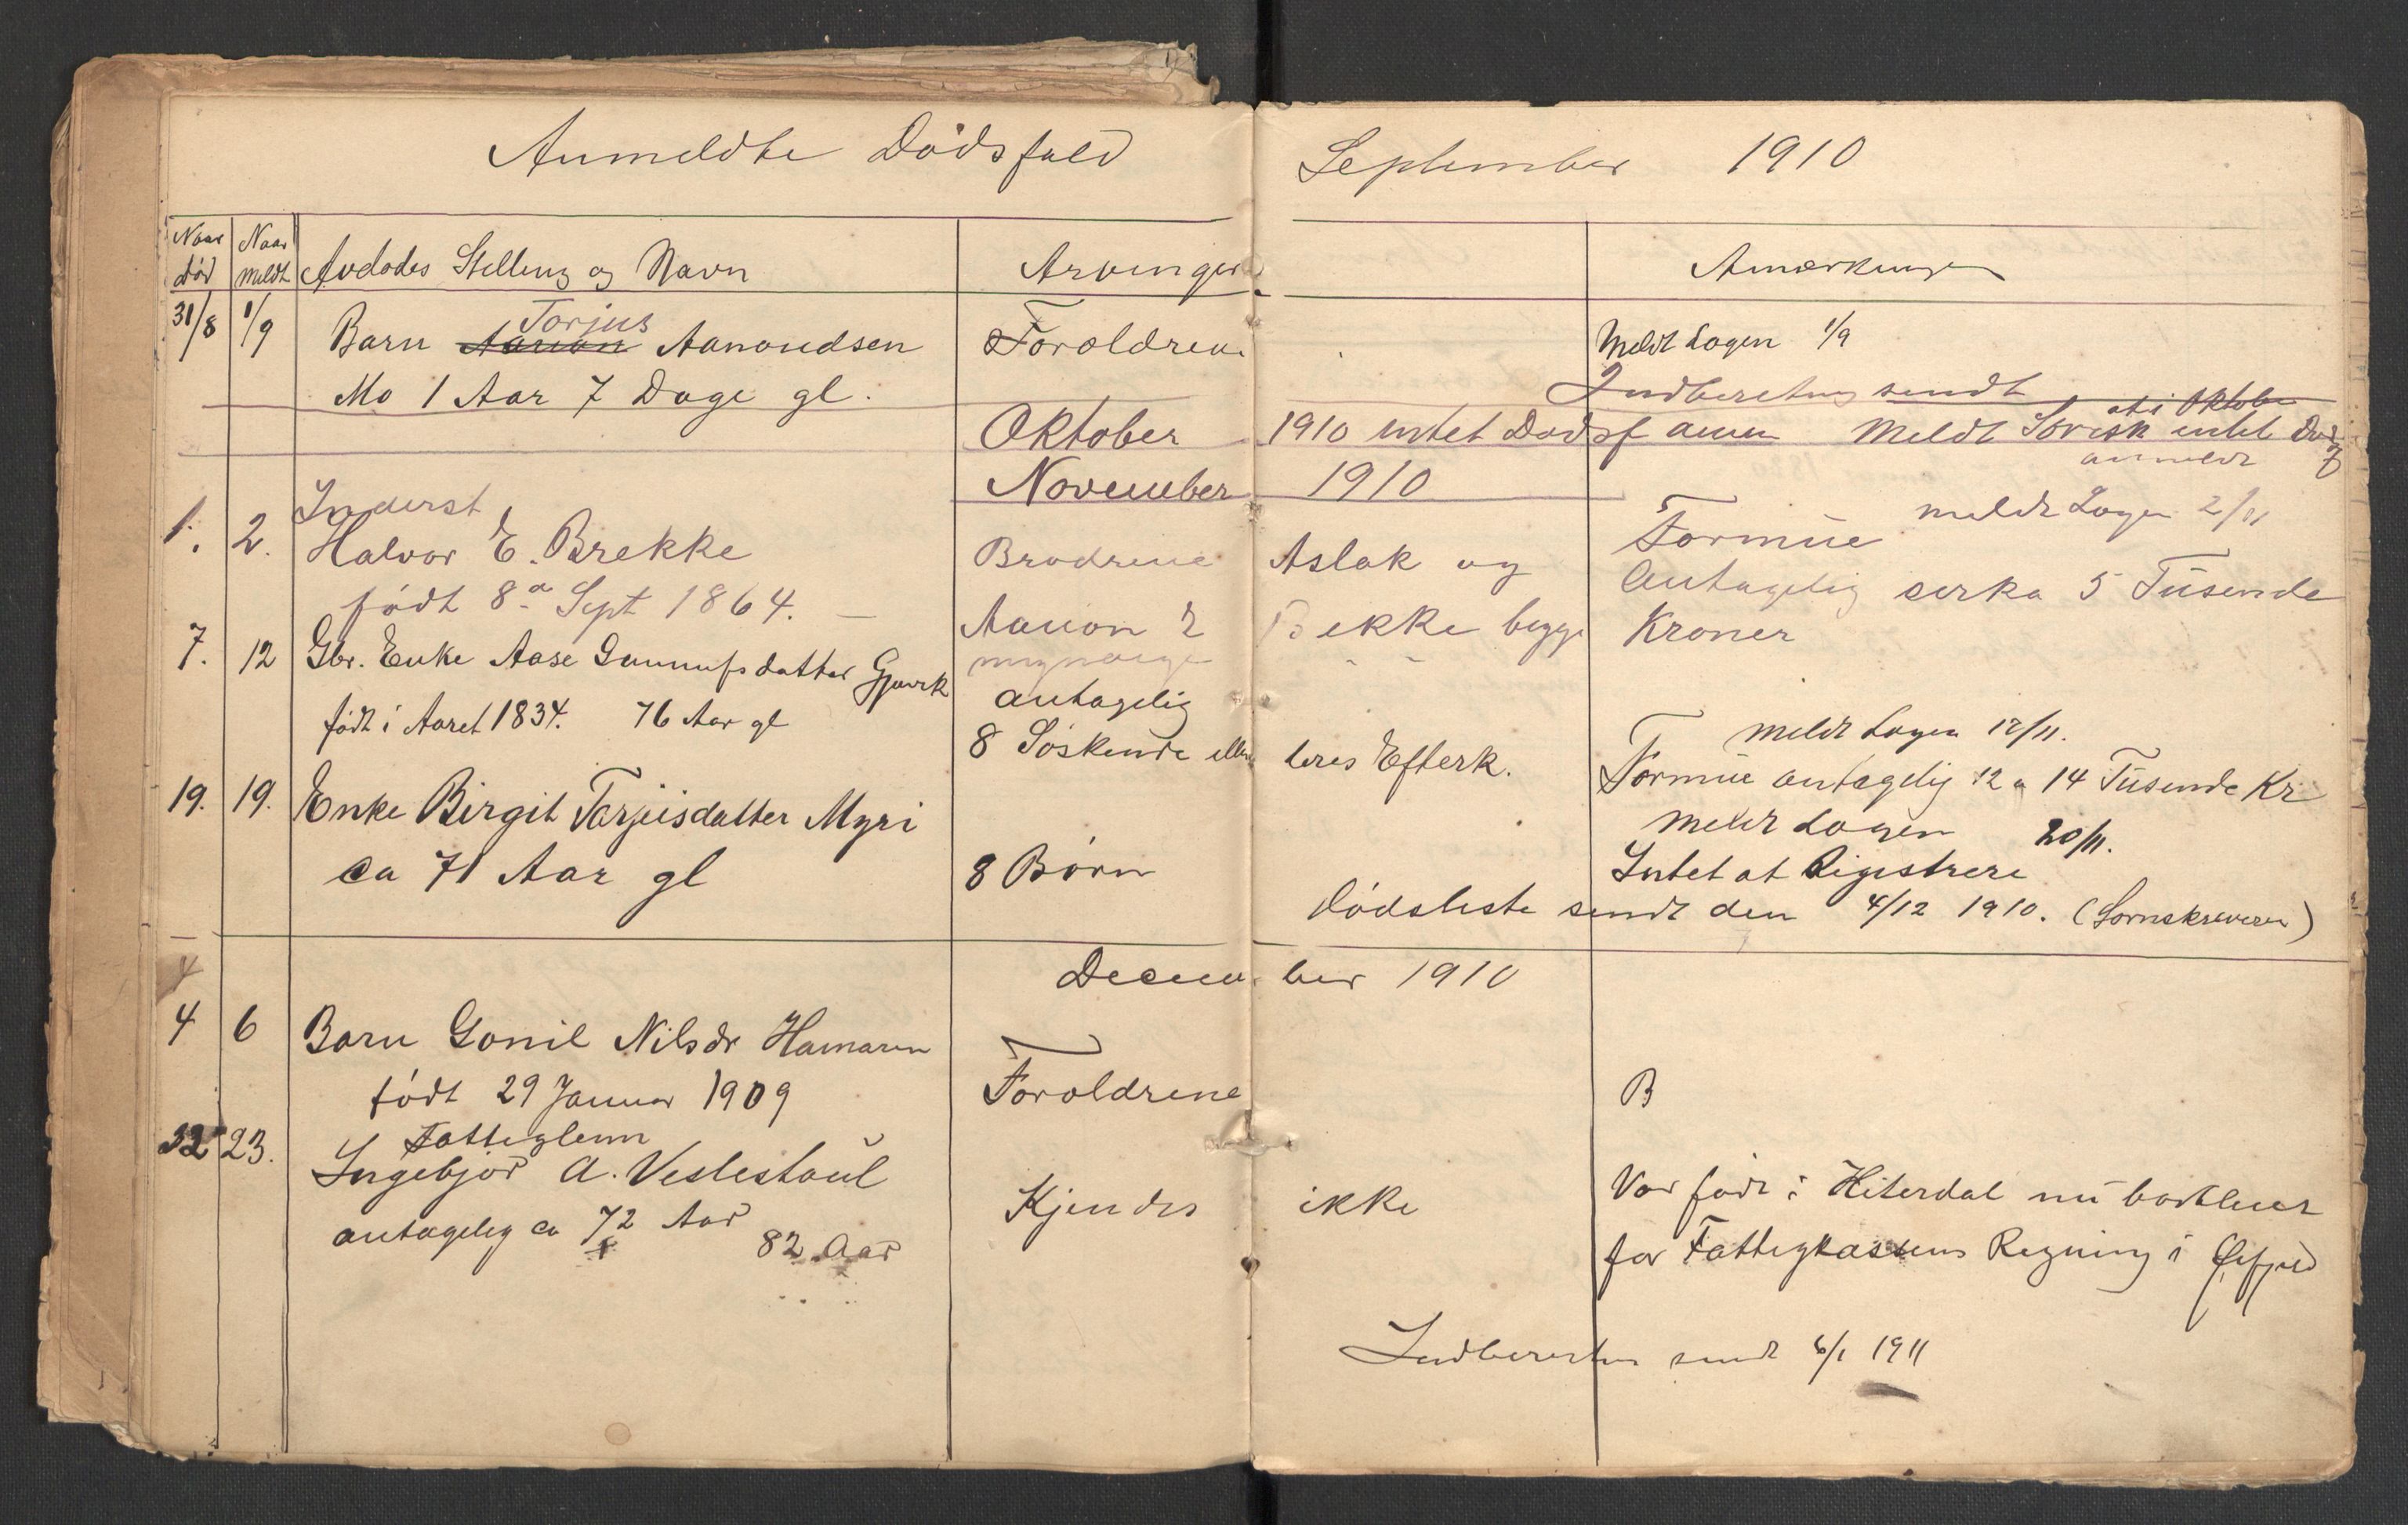 Anmeldte Dödsfald September 1910
Naar död
Naar meldt
Avdødes Stelling og Navn
Arvinger
Anmærkninger
31/8 1/9 Barn Aanon Torjus Aanondsen Foroldrene Meldt Logen 1/9
Mo 1 Aar 7 Dage gl. Indberetning sendt
Oktober 1910 intet Dødsf anm Meldt Sorensk at i Oktober intet Dødsf anmeldt
November 1910
1. 2. Inderst
Halvor E. Brekke Brødrene Aslak og Formue meldt Logen 2/11
født 8de Sept 1864. Aanon Brekke begge myndige Antagelig serka 5 Tusende Kroner
7. 12 Gbr. Enke Aase Gunnufsdatter antagelig
født i Aaret 1834. 76 Aar gl 8 Søskende eller deres Efterk. meldt Logen 12/11.
Formue antagelig 12 a 14 Tusende Kr
19. 19. Enke Birgit Tarjeisdatter Myri meldt Logen 20/11.
ca 71 Aar gl 8 Børn Intet at Rigistrere
Dödsliste sendt den 4/12 1910. (Sornskriveren)
December 1910
4 6 Barn Gonil Nilsdr Hamaren
født 29 Januar 1909 Foroldrene B
22 23. Fattiglem
Ingebjør A. Veslestaul Kjendes ikke Var født i Hiterdal nu bortleiet
antagelig ca 72 Aar 82 Aar for Fattigkassens Regning i
Indberetn sendt 6/1 1911